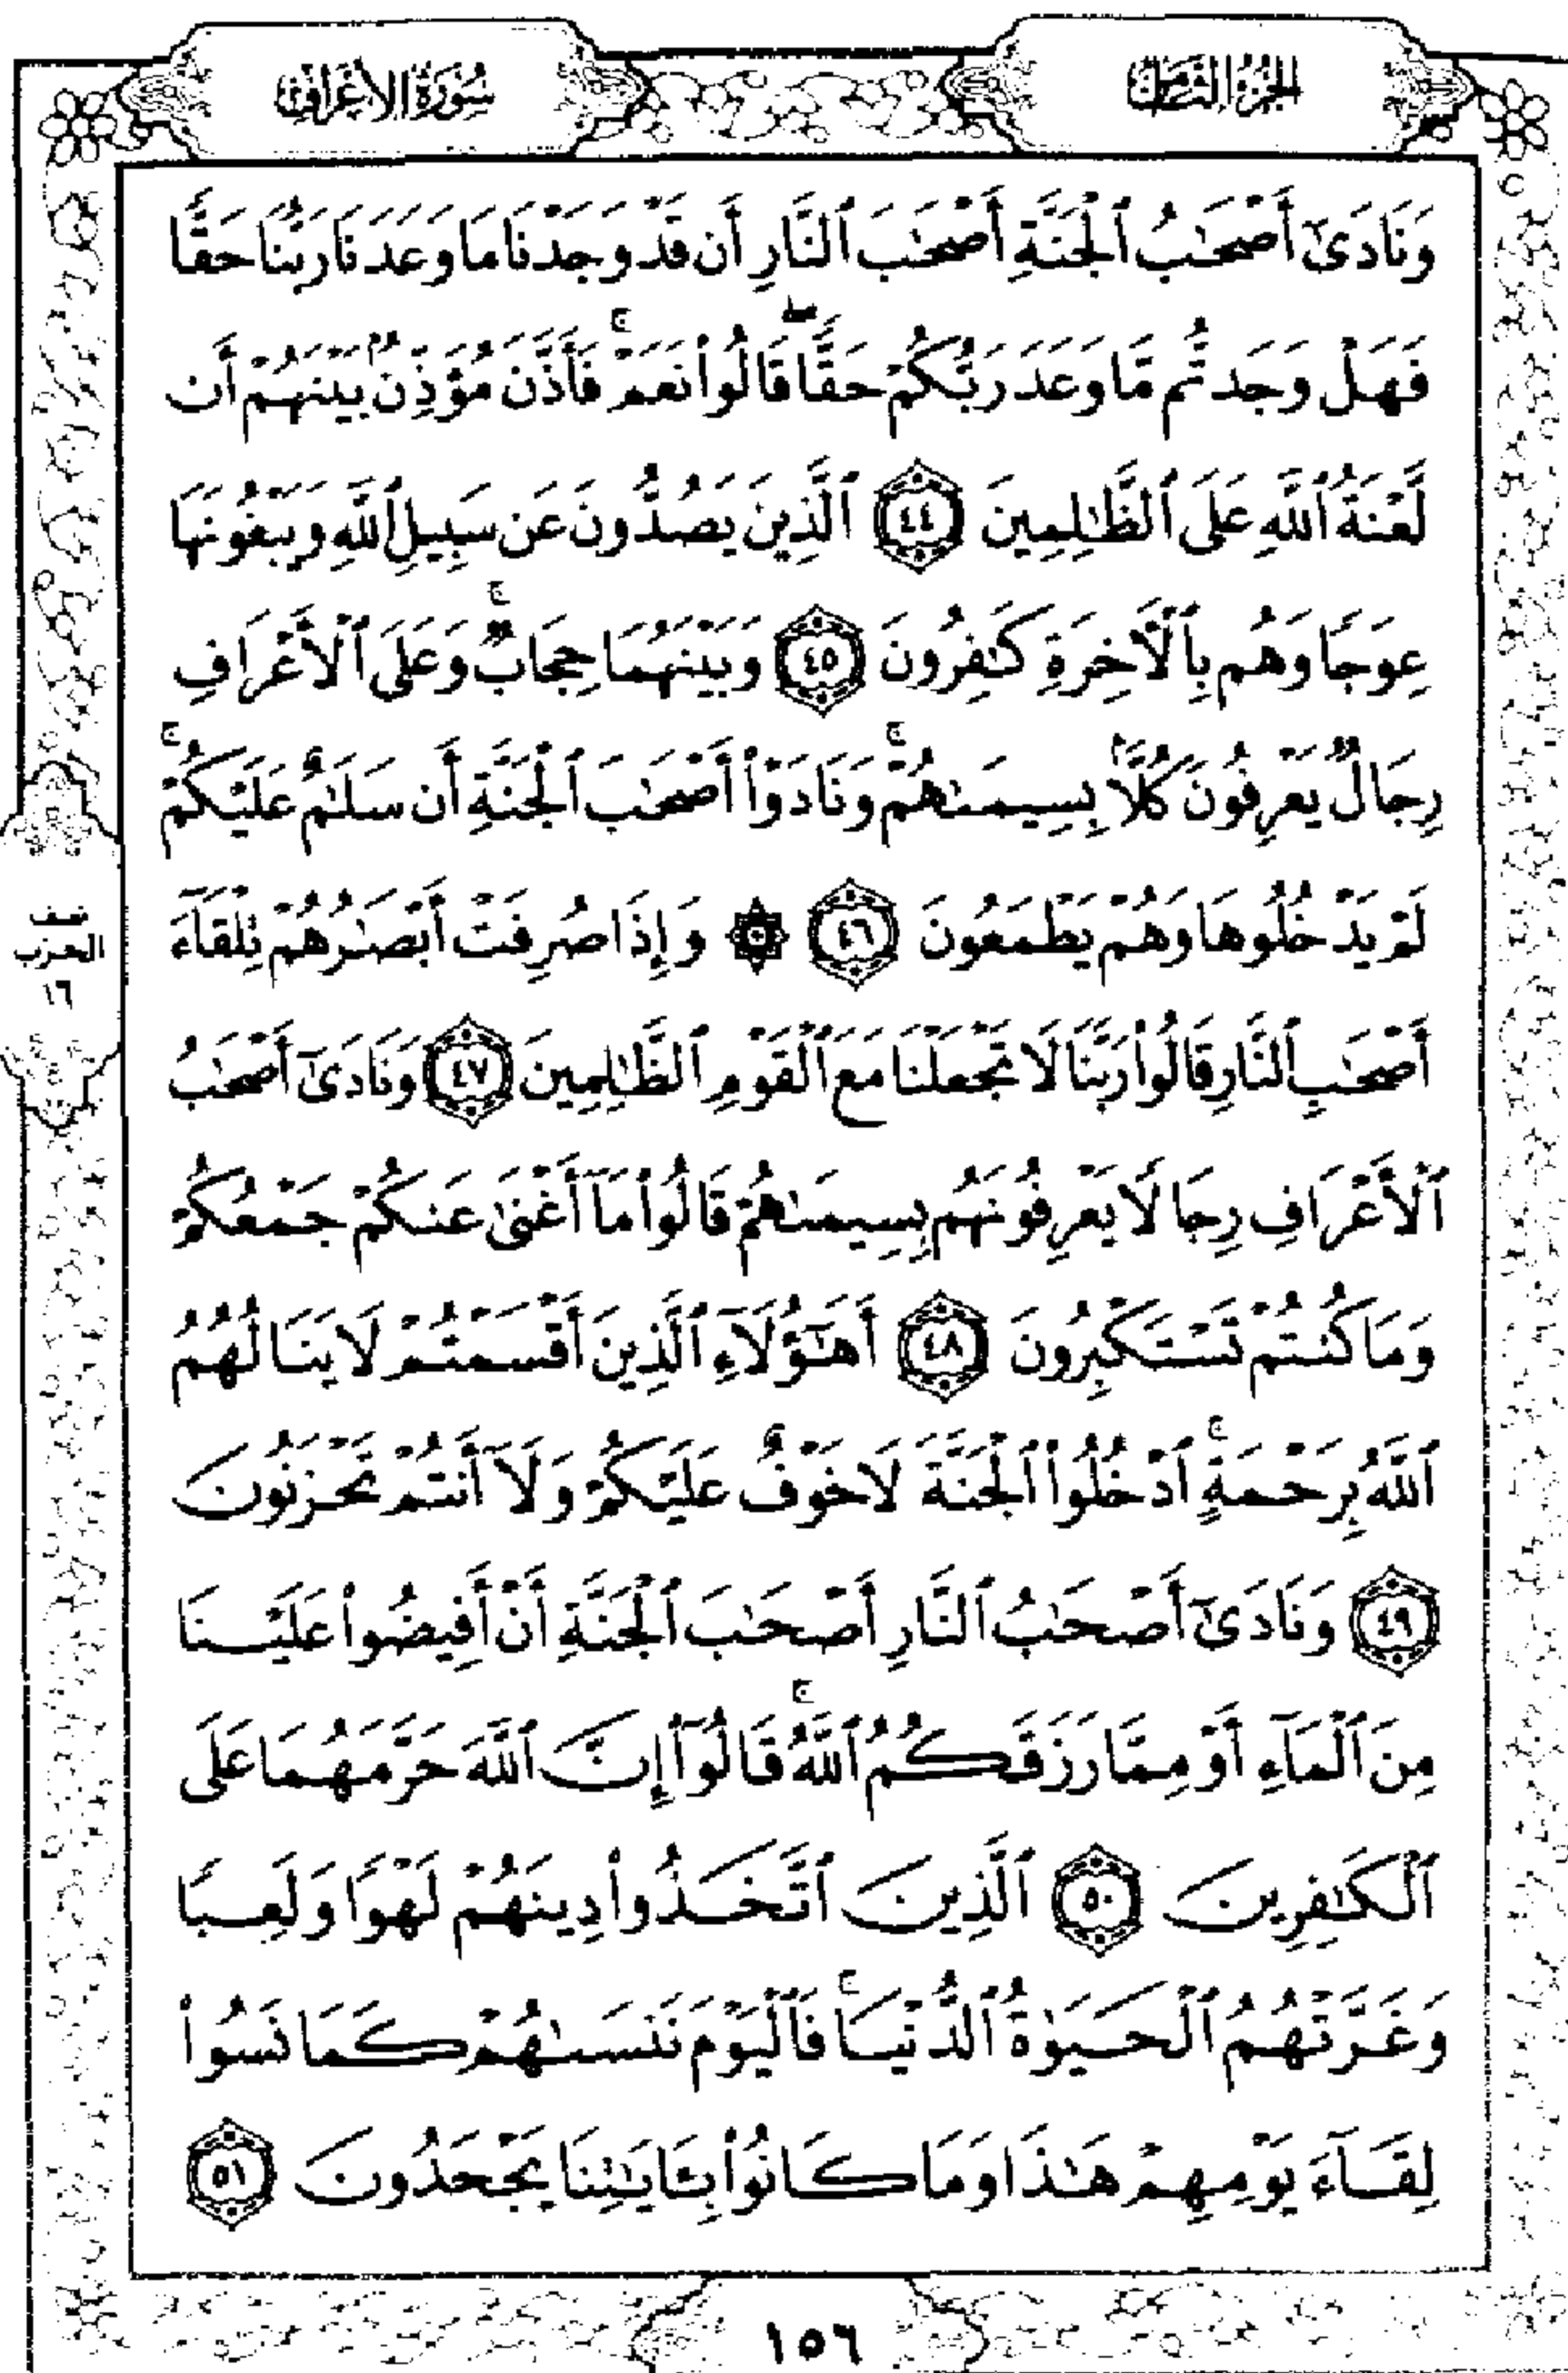 الجزء الثامن
سورة الأعراف
وَنَادَىٰٓ أَصۡحَٰبُ ٱلۡجَنَّةِ أَصۡحَٰبَ ٱلنَّارِ أَن قَدۡ وَجَدۡنَا مَا وَعَدَنَا رَبُّنَا حَقّٗا
فَهَلۡ وَجَدتُّم مَّا وَعَدَ رَبُّكُمۡ حَقّٗاۖ قَالُواْ نَعَمۡۚ فَأَذَّنَ مُؤَذِّنُۢ بَيۡنَهُمۡ أَن
لَّعۡنَةُ ٱللَّهِ عَلَى ٱلظَّٰلِمِينَ ٤٤ ٱلَّذِينَ يَصُدُّونَ عَن سَبِيلِ ٱللَّهِ وَيَبۡغُونَهَا
عِوَجٗا وَهُم بِٱلۡأٓخِرَةِ كَٰفِرُونَ ٤٥ وَبَيۡنَهُمَا حِجَابٞۚ وَعَلَى ٱلۡأَعۡرَافِ
رِجَالٞ يَعۡرِفُونَ كُلَّۢا بِسِيمَىٰهُمۡۚ وَنَادَوۡاْ أَصۡحَٰبَ ٱلۡجَنَّةِ أَن سَلَٰمٌ عَلَيۡكُمۡۚ
لَمۡ يَدۡخُلُوهَا وَهُمۡ يَطۡمَعُونَ ٤٦ ۞ وَإِذَا صُرِفَتۡ أَبۡصَٰرُهُمۡ تِلۡقَآءَ
أَصۡحَٰبِ ٱلنَّارِ قَالُواْ رَبَّنَا لَا تَجۡعَلۡنَا مَعَ ٱلۡقَوۡمِ ٱلظَّٰلِمِينَ ٤٧ وَنَادَىٰٓ أَصۡحَٰبُ
ٱلۡأَعۡرَافِ رِجَالٗا يَعۡرِفُونَهُم بِسِيمَىٰهُمۡ قَالُواْ مَآ أَغۡنَىٰ عَنكُمۡ جَمۡعُكُمۡ
وَمَا كُنتُمۡ تَسۡتَكۡبِرُونَ ٤٨ أَهَٰٓؤُلَآءِ ٱلَّذِينَ أَقۡسَمۡتُمۡ لَا يَنَالُهُمُ
ٱللَّهُ بِرَحۡمَةٍۚ ٱدۡخُلُواْ ٱلۡجَنَّةَ لَا خَوۡفٌ عَلَيۡكُمۡ وَلَآ أَنتُمۡ تَحۡزَنُونَ
٤٩ وَنَادَىٰٓ أَصۡحَٰبُ ٱلنَّارِ أَصۡحَٰبَ ٱلۡجَنَّةِ أَنۡ أَفِيضُواْ عَلَيۡنَا
مِنَ ٱلۡمَآءِ أَوۡ مِمَّا رَزَقَكُمُ ٱللَّهُۚ قَالُوٓاْ إِنَّ ٱللَّهَ حَرَّمَهُمَا عَلَى
ٱلۡكَٰفِرِينَ ٥٠ ٱلَّذِينَ ٱتَّخَذُواْ دِينَهُمۡ لَهۡوٗا وَلَعِبٗا
وَغَرَّتۡهُمُ ٱلۡحَيَوٰةُ ٱلدُّنۡيَاۚ فَٱلۡيَوۡمَ نَنسَىٰهُمۡ كَمَا نَسُواْ
لِقَآءَ يَوۡمِهِمۡ هَٰذَا وَمَا كَانُواْ بِـَٔايَٰتِنَا يَجۡحَدُونَ ٥١
نصف
الحزب
١٦
١٥٦